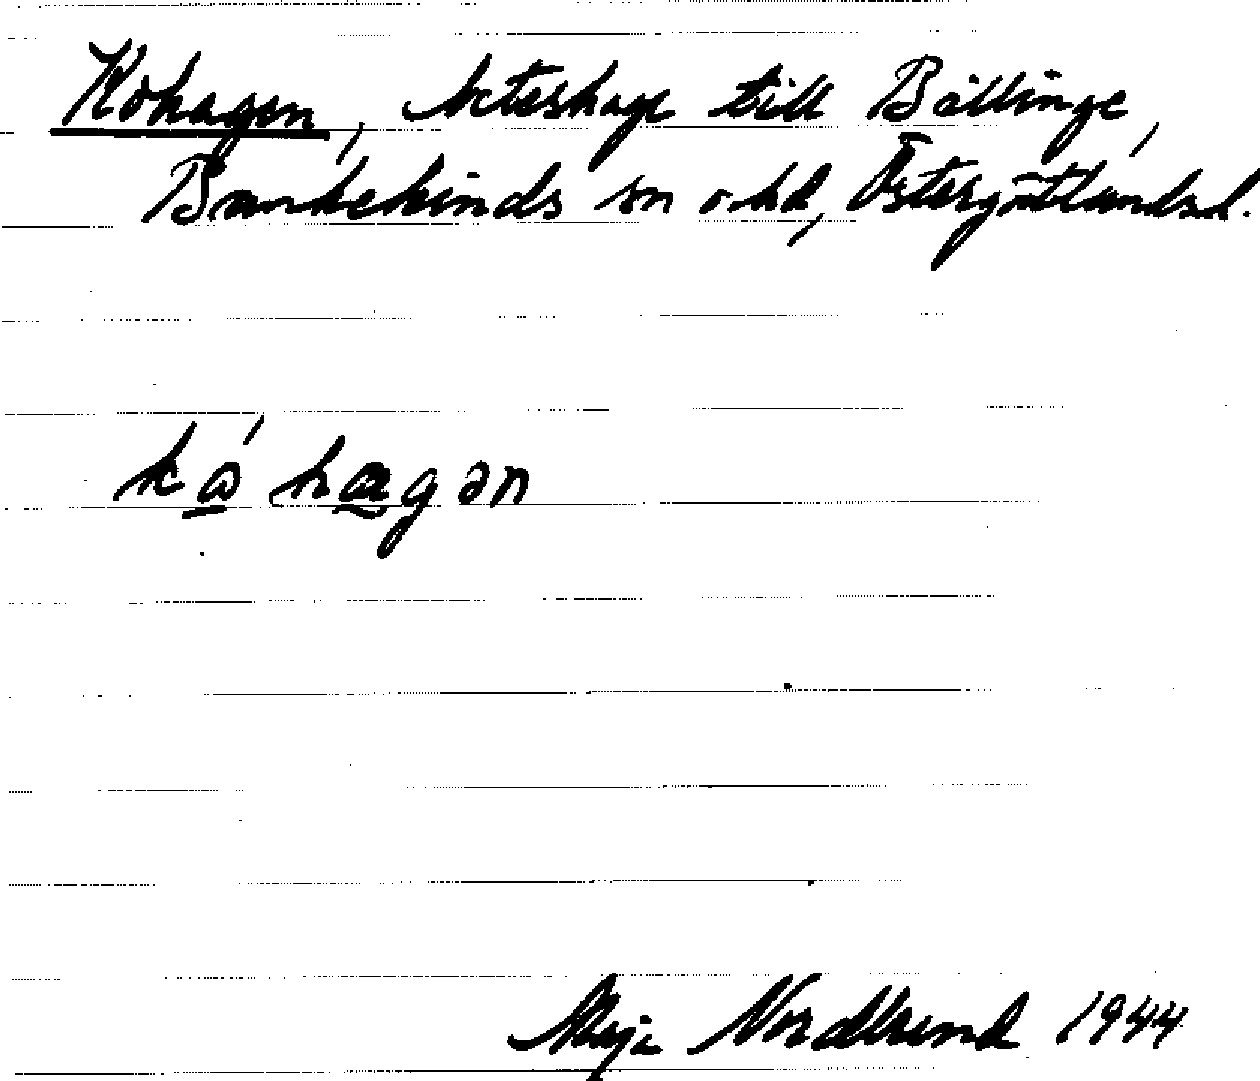 Kohagen, beteshage till Bällinge,
Bankekinds sn o. hd, Östergötlands l.
kó hagən
Maja Nordlund 1944